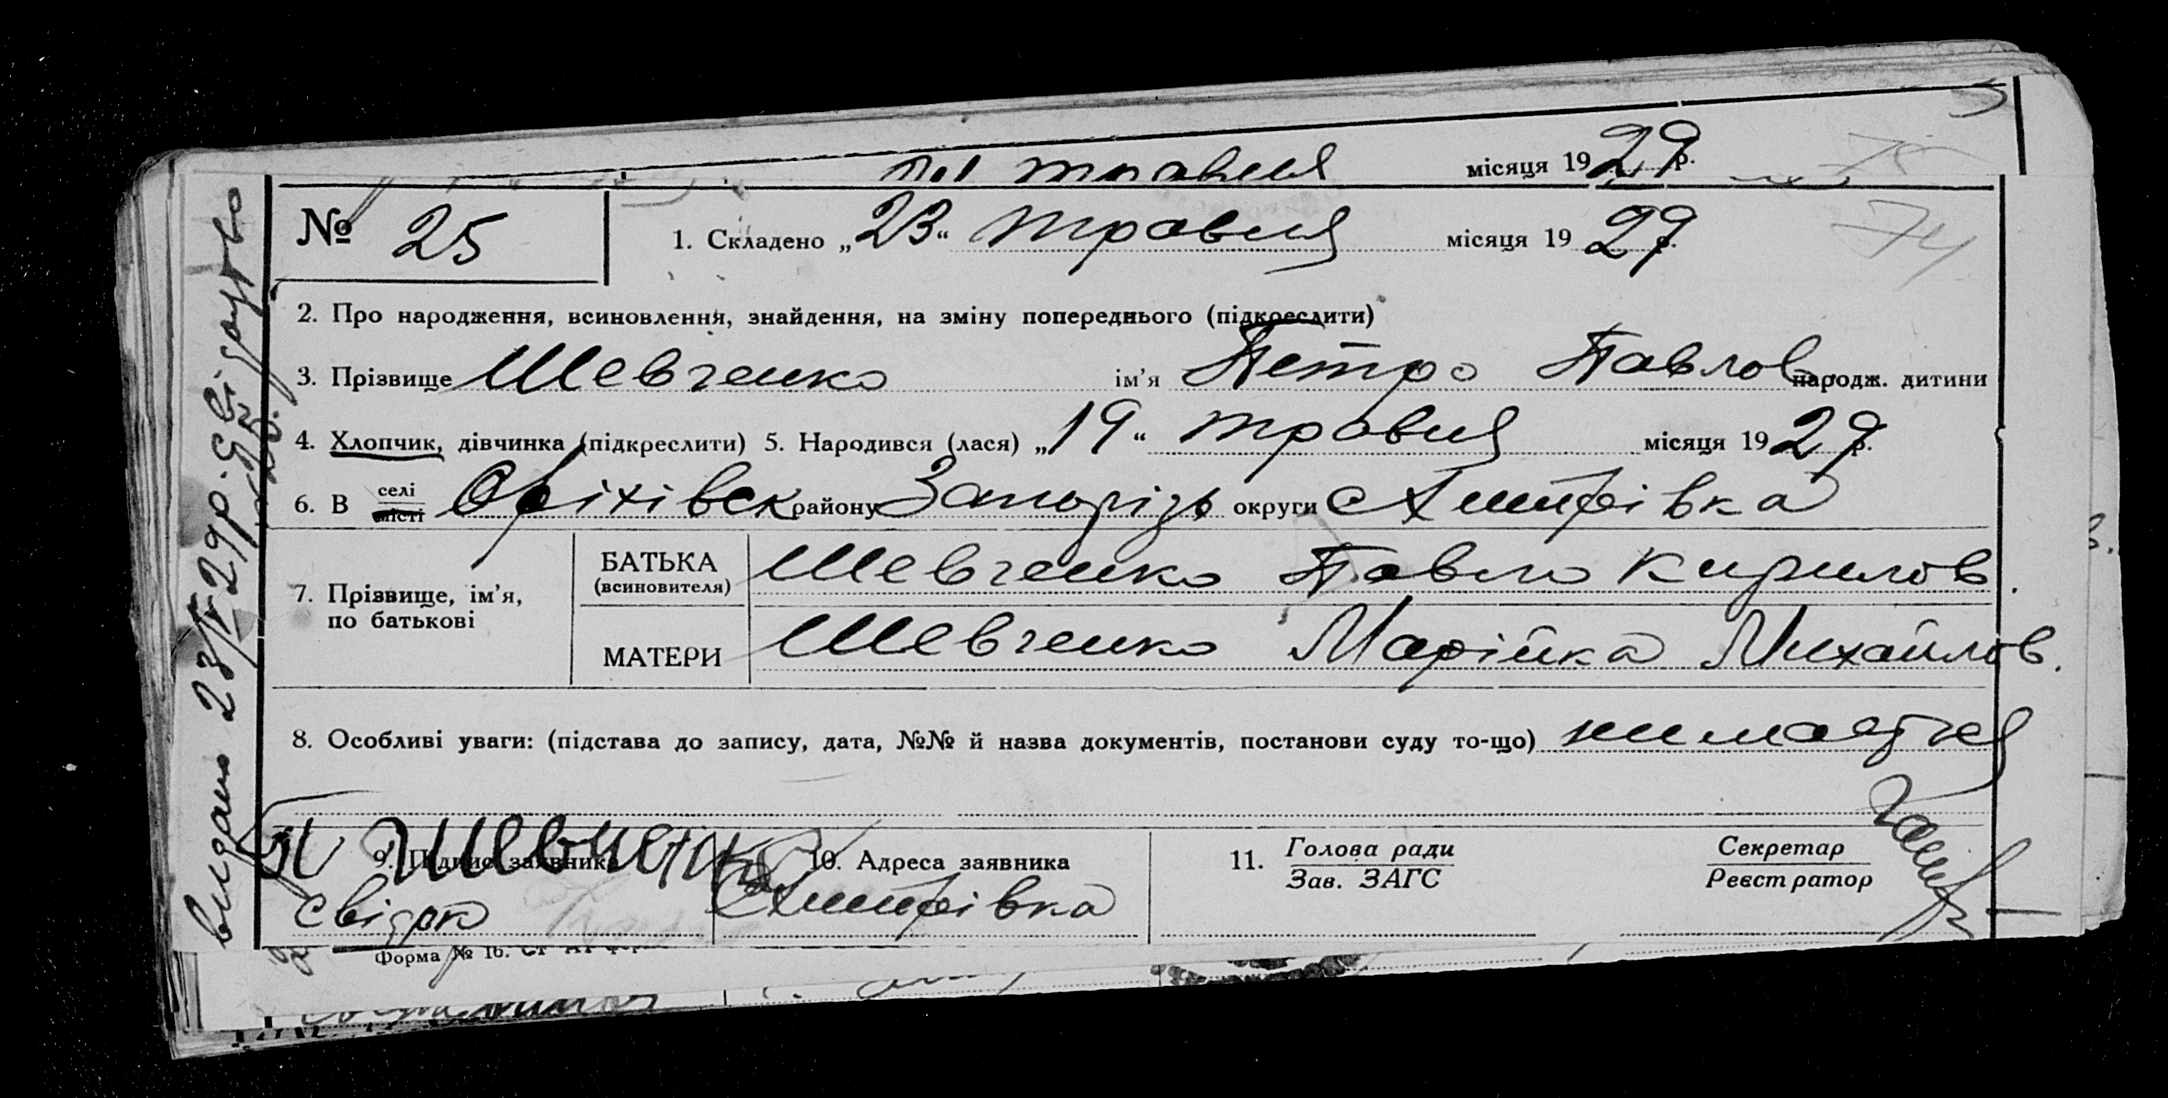 травня місяця 1929 р.
№ 25
1. Складено „23“ травня місяця 1929 р.
74
2. Про народження, всиновлення, знайдення, на зміну попереднього (підкреслити)
3. Прізвище Шевченко ім’я Петро Павлов. народж. дитини
4. Хлопчик, дівчинка (підкреслити) 5. Народився (лася) „19“ травня місяця 1929 р.
6. В селі місті Оріхівск району Запорізь округи с Дмитрівка
7. Прізвище, ім’я, по батькові
БАТЬКА (всиновителя) Шевченко Павло Кирилов.
МАТЕРИ Шевченко Марійка Михайлов.
8. Особливі уваги: (підстава до запису, дата, №№ й назва документів, постанови суду то-що)
9. Підпис заявника 10. Адреса заявника 11. Голова ради Зав. ЗАГС Секретар Реєстратор
П Шевченко
с Дмитрівка
Форма № 1б. Ст
видано 23/V-29р.